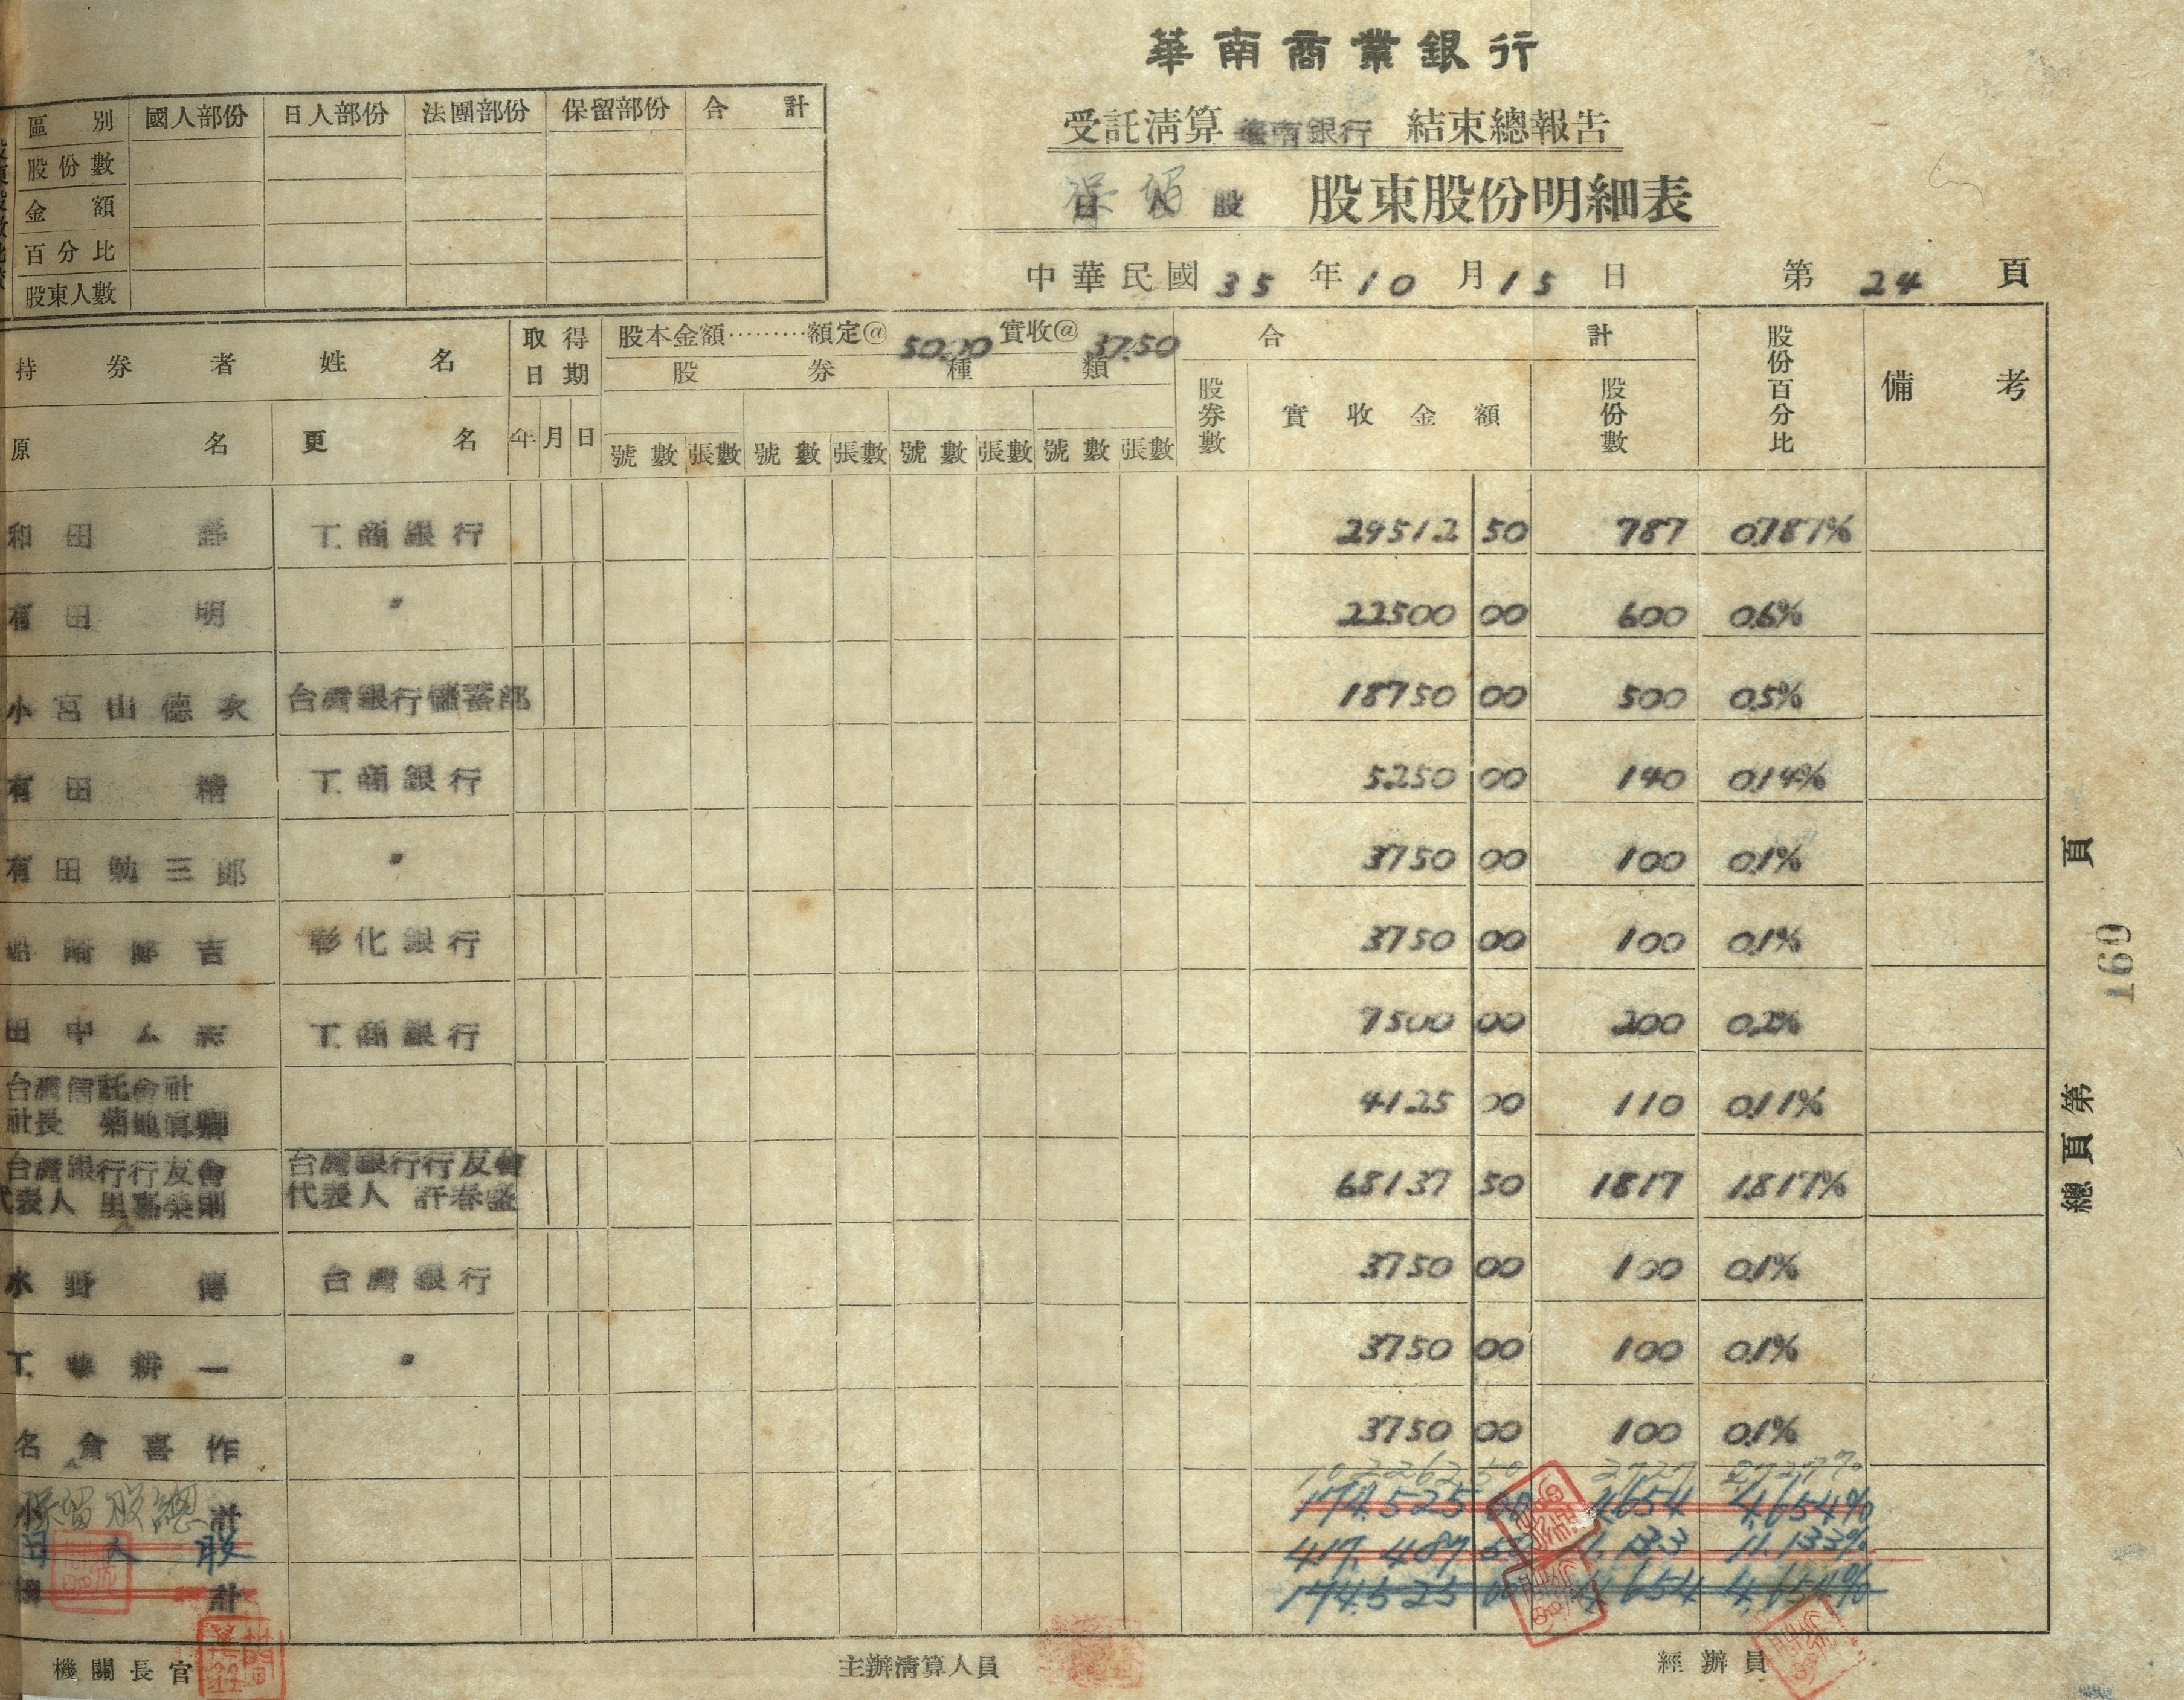 華南商業銀行
受託清算 華南銀行 結束總報告
保留股 股東股份明細表
中華民國 35 年 10 月 15 日 第 24 頁
區別 國人部份 日人部份 法團部份 保留部份 合計
股份數
金額
百分比
股東人數
持券者姓名 取得日期 股本金額………額定@ 50.00 實收@ 37.50 合計 股份百分比 備考
股券種類
原名 更名 年 月 日 號數 張數 號數 張數 號數 張數 號數 張數 股券數 實收金額 股份數
和田 工商銀行 29512 50 787 0.787%
有田明 〃 22500 00 600 0.6%
小宮山德次 台灣銀行儲蓄部 18750 00 500 0.5%
有田精 工商銀行 5250 00 140 0.14%
有田勉三郎 〃 3750 00 100 0.1%
吉 彰化銀行 3750 00 100 0.1%
田中 工商銀行 7500 00 200 0.2%
台灣信託會社
社長 菊地 4125 00 110 0.11%
台灣銀行行友會 台灣銀行行友會
代表人 代表人 許春盛 68137 50 1817 1.817%
水野傳 台灣銀行 3750 00 100 0.1%
工藤耕一 〃 3750 00 100 0.1%
名倉喜作 3750 00 100 0.1%
102262 50 2727 2.727%
保留股總計 174,525 00 4,654 4.654%
日人股 417,487 11.133%
總計 174,525 00 4,654 4.654%
機關長官 主辦清算人員 經辦員
總頁第 頁
160